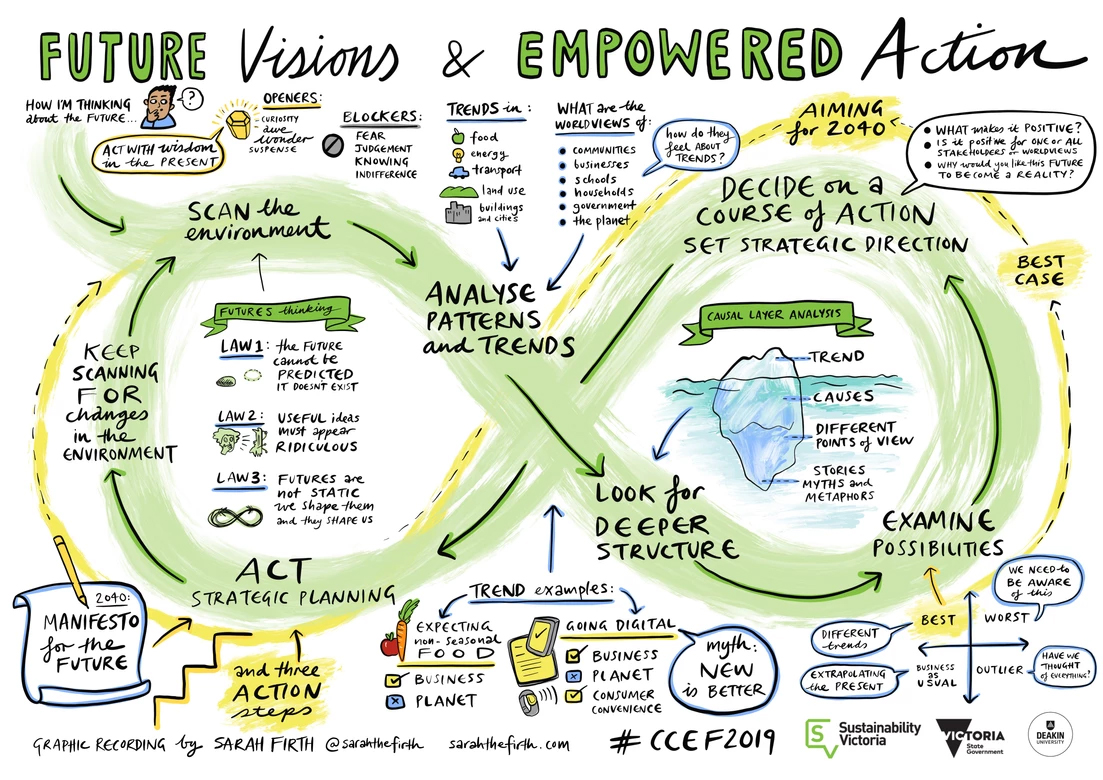 FUTURE Visions & EMPOWERED Action
HOW I'M THINKING
about the FUTURE...
?
ACT WITH wisdom
in the PRESENT
OPENERS:
CURIOSITY
awe
wonder
SUSPENSE
BLOCKERS:
FEAR
JUDGEMENT
KNOWING
INDIFFERENCE
TRENDS in:
food
energy
transport
land use
buildings
and cities
WHAT are the
WORLDVIEWS of:
COMMUNITIES
businesses
schools
households
government
the planet
how do they
feel ABOUT
TRENDS?
AIMING
for 2040
WHAT makes it POSITIVE?
IS it positive for ONE or ALL
STAKEHOLDERS or WORLDVIEWS
WHY would you like this FUTURE
TO BECOME A REALITY?
SCAN the
environment
ANALYSE
PATTERNS
and TRENDS
DECIDE on a
COURSE of ACTION
SET STRATEGIC DIRECTION
BEST
CASE
FUTURES thinking
LAW 1: the FUTURE
cannot be
PREDICTED
IT DOESNT EXIST
LAW 2: USEFUL ideas
must appear
RIDICULOUS
LAW 3: FUTURES are
not STATIC
we shape them
and they SHAPE US
KEEP
SCANNING
FOR
changes
in the
ENVIRONMENT
CAUSAL LAYER ANALYSIS
TREND
CAUSES
DIFFERENT
POINTS of VIEW
STORIES
MYTHS and
METAPHORS
LOOK for
DEEPER
STRUCTURE
EXAMINE
POSSIBILITIES
ACT
STRATEGIC PLANNING
2040:
MANIFESTO
for the
FUTURE
and three
ACTION
steps
TREND examples:
EXPECTING
non-seasonal
FOOD
BUSINESS
PLANET
GOING DIGITAL
BUSINESS
PLANET
CONSUMER
CONVENIENCE
myth:
NEW
is BETTER
WE NEED to
BE AWARE
of this
BEST
WORST
BUSINESS
as
USUAL
OUTLIER
DIFFERENT
trends
EXTRAPOLATING
the PRESENT
HAVE WE
THOUGHT
of EVERYTHING?
GRAPHIC RECORDING by SARAH FIRTH @sarahthefirth sarahthefirth.com
#CCEF2019
S
Sustainability
Victoria
VICTORIA
State
Government
DEAKIN
UNIVERSITY